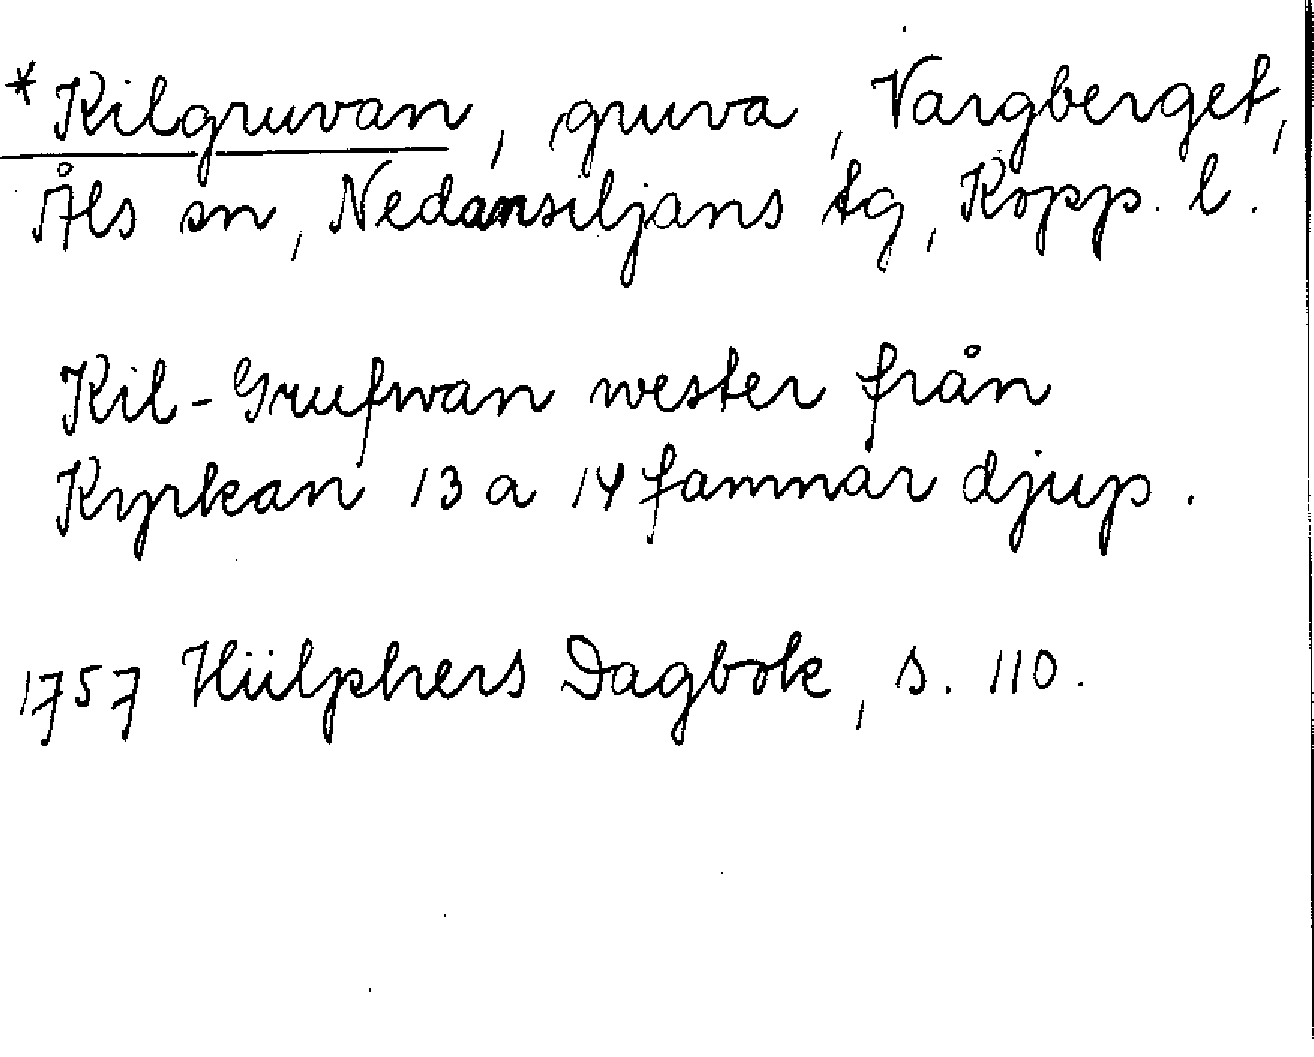 *Kilgruvan, gruva, Vargberget,
Åls sn, Nedansiljans tg, Kopp. l.
Kil-Grufwan wester från
Kyrkan 13 a 14 famnar djup.
1757 Hülphers Dagbok, s. 110.